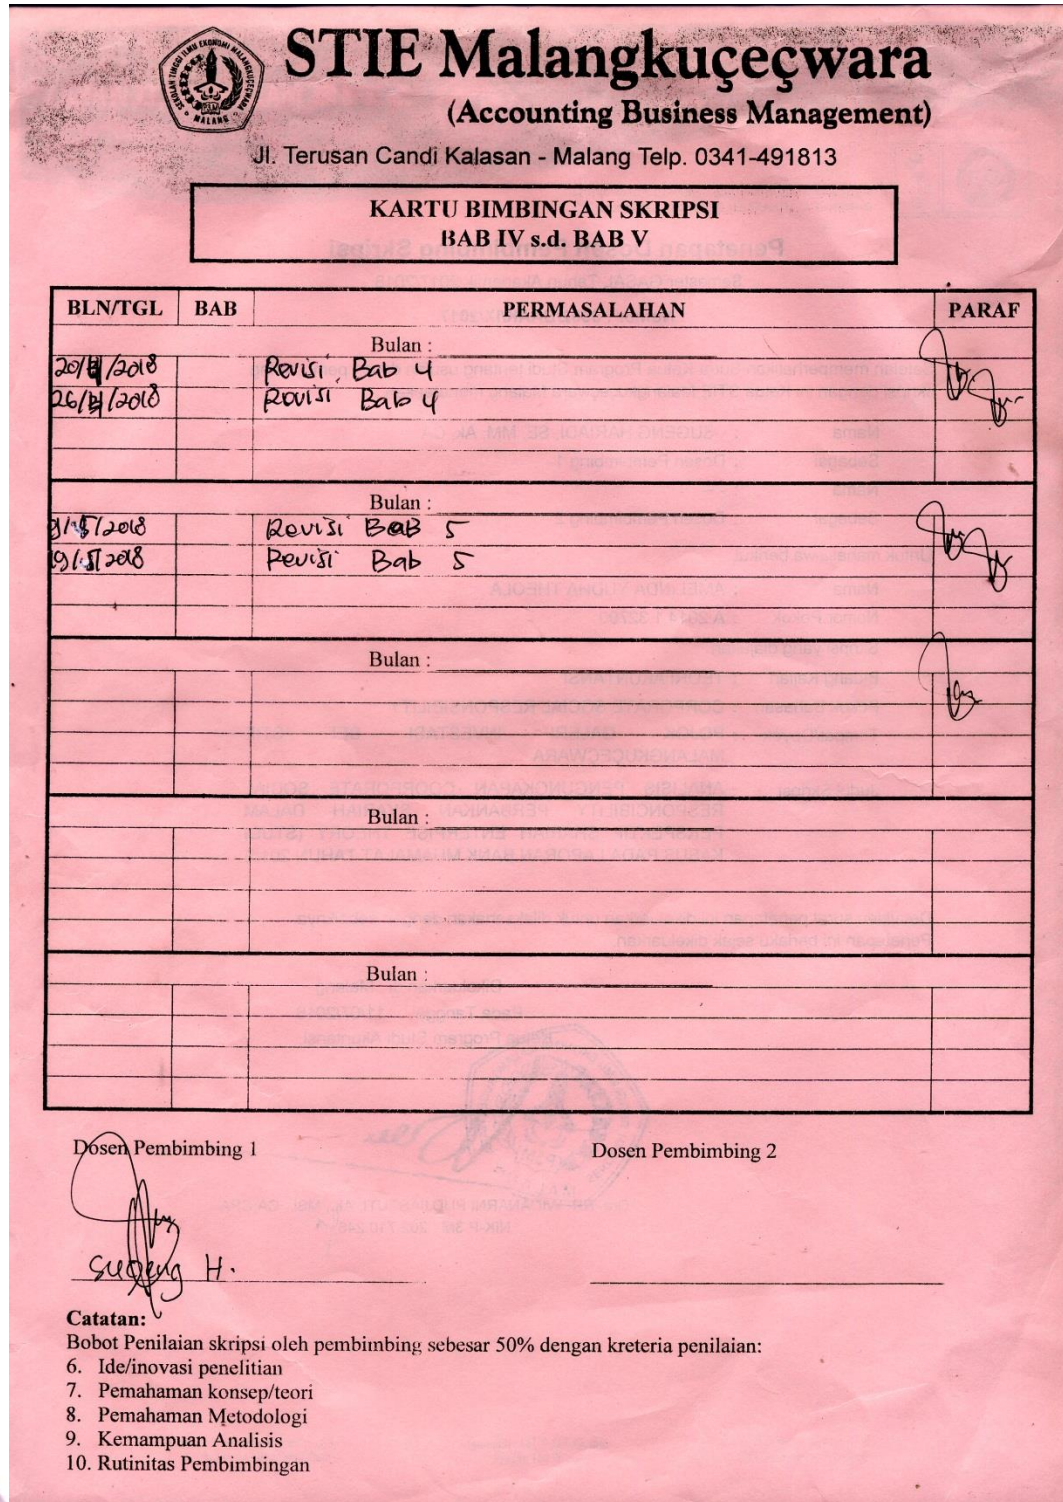 SEKOLAH TINGGI ILMU EKONOMI MALANGKUÇEÇWARA
MALANG
STIE Malangkuçeçwara
(Accounting Business Management)
Jl. Terusan Candi Kalasan - Malang Telp. 0341-491813
KARTU BIMBINGAN SKRIPSI
BAB IV s.d. BAB V
BLN/TGL BAB PERMASALAHAN PARAF
Bulan :
/2018 Revisi Bab 4
/2018 Revisi Bab 4
Bulan :
9/5/2018 Revisi BaB 5
19/5/2018 Revisi Bab 5
Bulan :
Bulan :
Bulan :
Dosen Pembimbing 1 Dosen Pembimbing 2
Sugeng H.
Catatan:
Bobot Penilaian skripsi oleh pembimbing sebesar 50% dengan kreteria penilaian:
6. Ide/inovasi penelitian
7. Pemahaman konsep/teori
8. Pemahaman Metodologi
9. Kemampuan Analisis
10. Rutinitas Pembimbingan